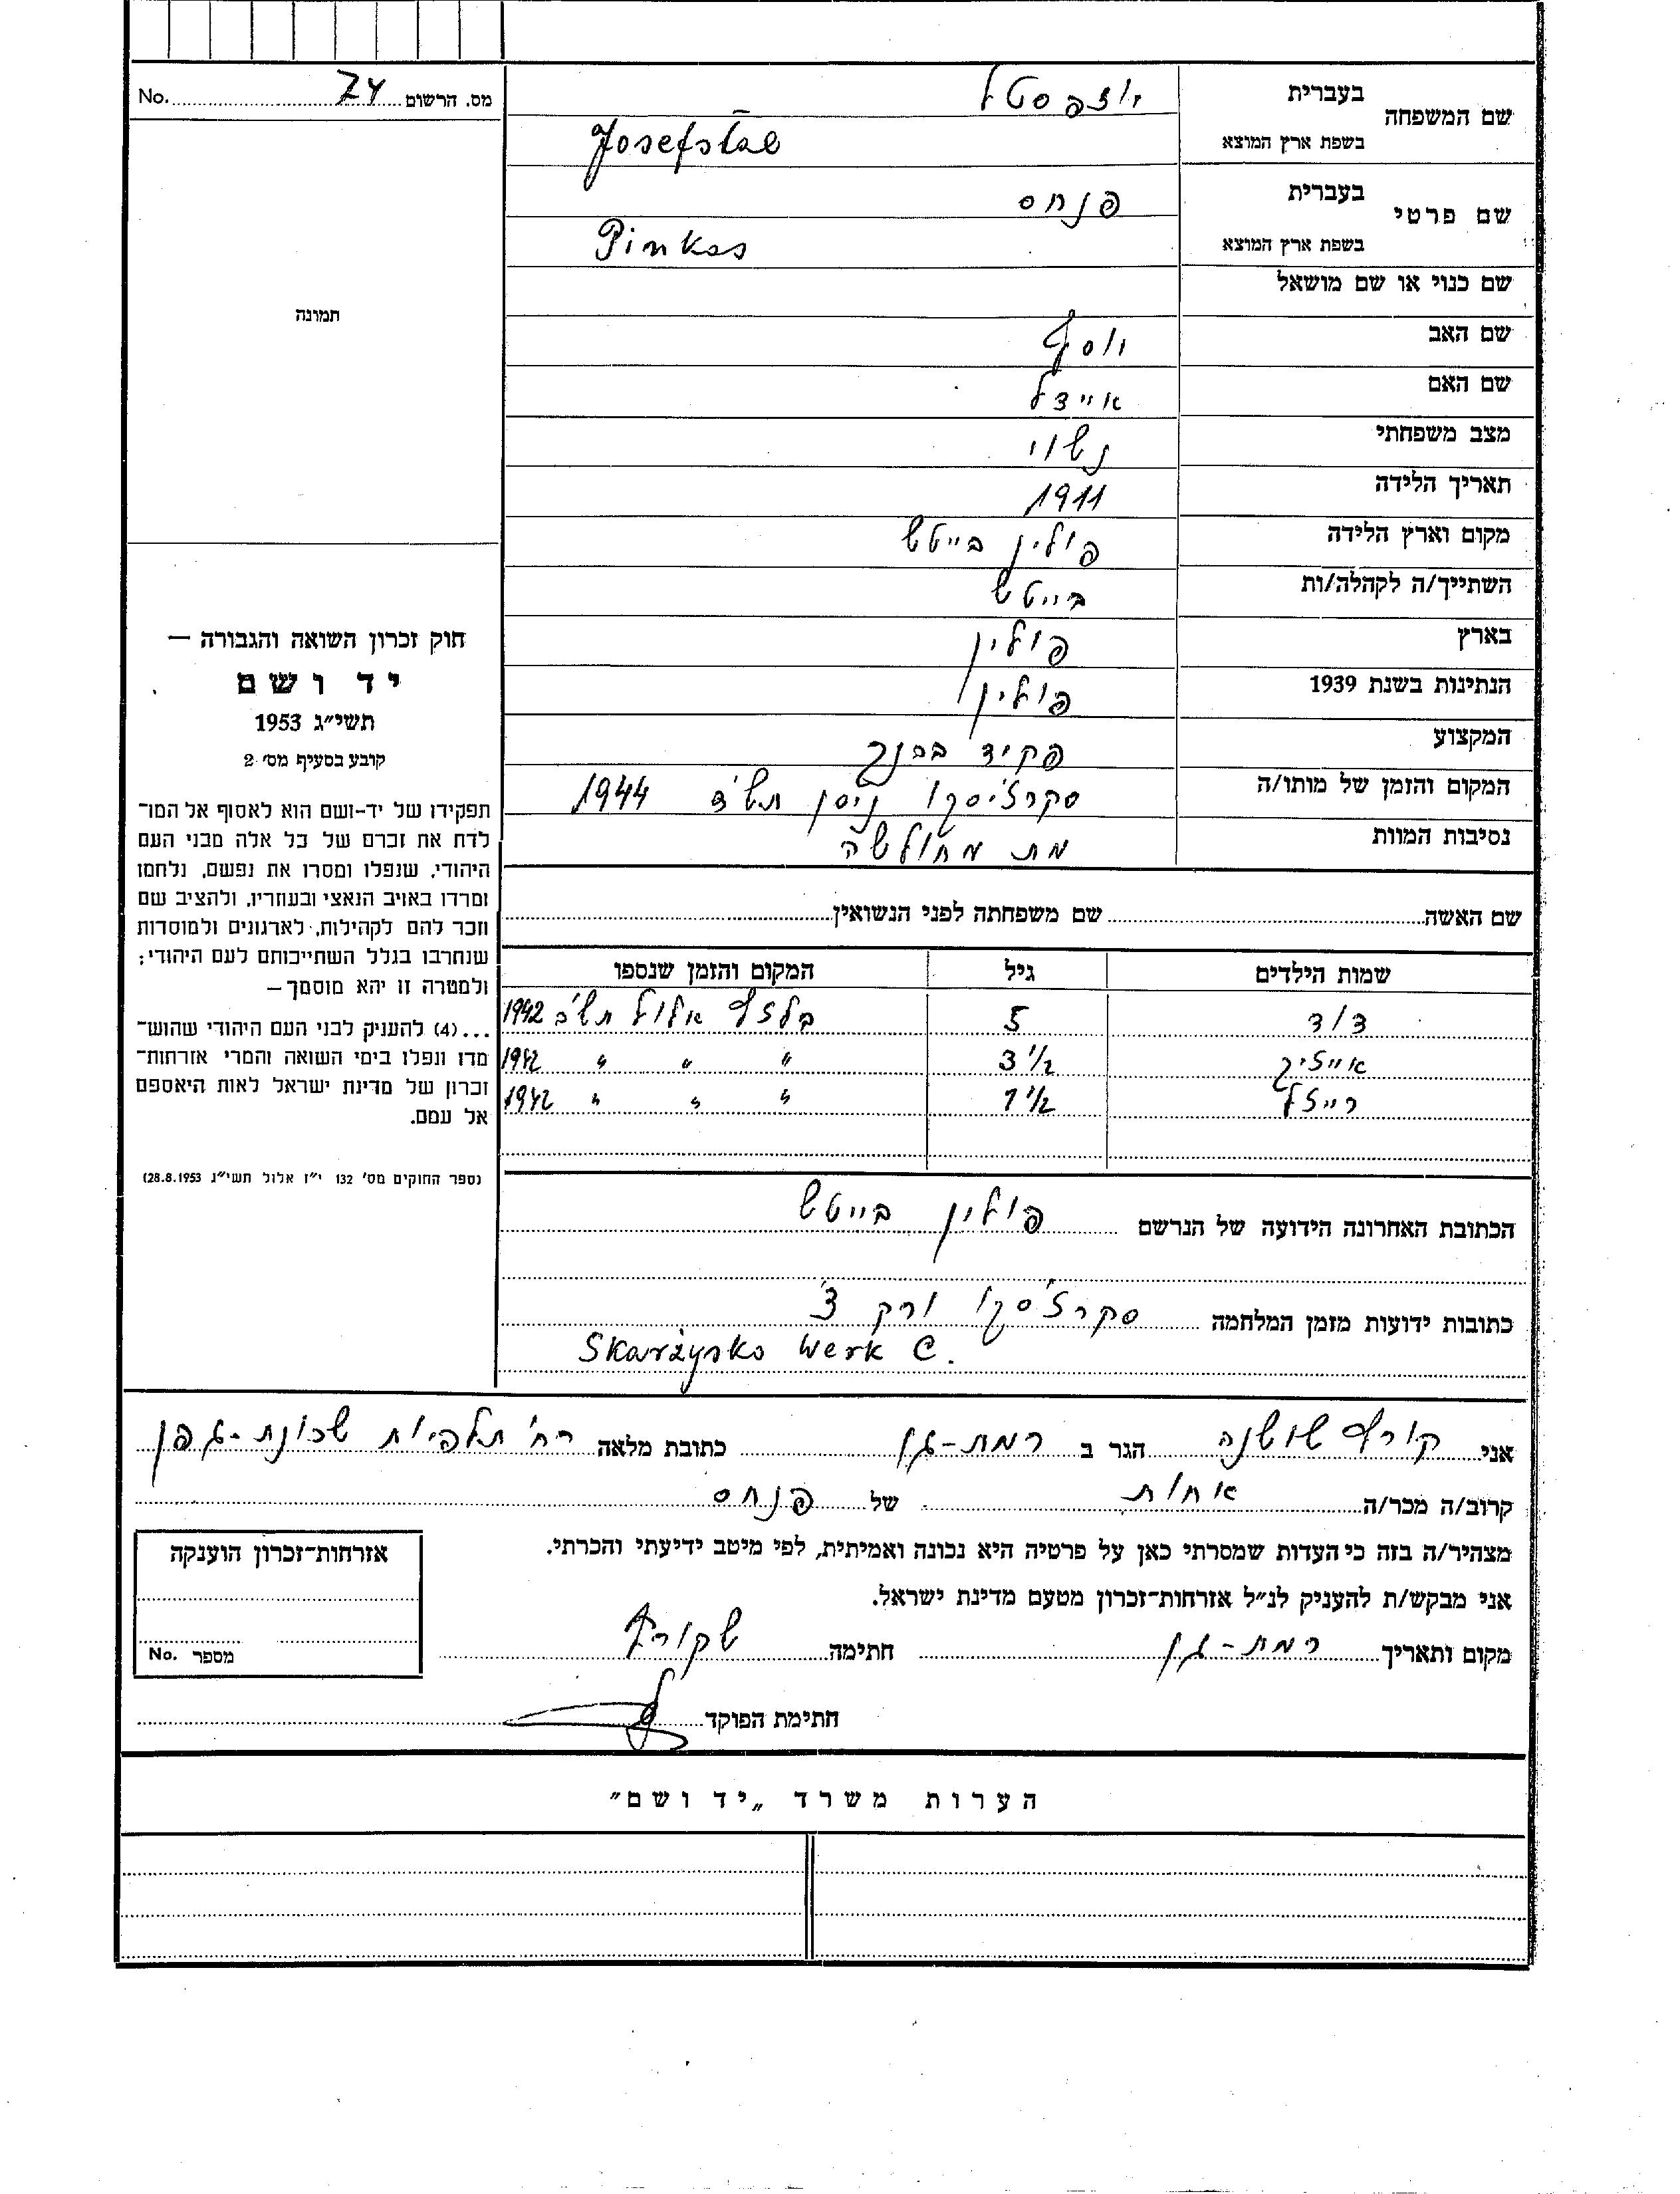 שם המשפחה בעברית יוזפסטל
בשפת ארץ המוצא Josefstal
שם פרטי בעברית פנחס
בשפת ארץ המוצא Pinkas
שם כנוי או שם מושאל
שם האב יוסף
שם האם איידל
מצב משפחתי נשוי
תאריך הלידה 1911
מקום וארץ הלידה פולין בייטש
השתייך/ה לקהלה/ות בייטש
בארץ פולין
הנתינות בשנת 1939 פולין
המקצוע פקיד בבנק
המקום והזמן של מותו/ה סקרז'יסקו ניסן תש"ד 1944
נסיבות המוות מת מחולשה
שם האשה שם משפחתה לפני הנשואין
שמות הילדים גיל המקום והזמן שנספו
דוד 5 בלזץ אלול תש"ב 1942
אייזיק 3 1/2 " " " 1942
רייזל 1 1/2 " " " 1942
הכתובת האחרונה הידועה של הנרשם פולין בייטש
כתובות ידועות מזמן המלחמה סקרז'סקו ורק צ'
Skarżysko Werk C.
מס. הרשום 74 No.
תמונה
חוק זכרון השואה והגבורה —
יד ושם
תשי"ג 1953
קובע בסעיף מס' 2
תפקידו של יד-ושם הוא לאסוף אל המו־
לדת את זכרם של כל אלה מבני העם
היהודי, שנפלו ומסרו את נפשם, נלחמו
ומרדו באויב הנאצי ובעוזריו, ולהציב שם
וזכר להם לקהילות, לארגונים ולמוסדות
שנחרבו בגלל השתייכותם לעם היהודי;
ולמטרה זו יהא מוסמך —
...(4) להעניק לבני העם היהודי שהוש־
מדו ונפלו בימי השואה והמרי אזרחות־
זכרון של מדינת ישראל לאות היאספם
אל עמם.
(ספר החוקים מס' 132 י"ז אלול תשי"ג 28.8.1953)
אני קורץ שושנה הגר ב רמת-גן כתובת מלאה רח' תלפיות שכונת-גפן
קרוב/ה מכר/ה אחות של פנחס
מצהיר/ה בזה כי העדות שמסרתי כאן על פרטיה היא נכונה ואמיתית, לפי מיטב ידיעתי והכרתי.
אני מבקש/ת להעניק לנ"ל אזרחות־זכרון מטעם מדינת ישראל.
מקום ותאריך רמת-גן חתימה ש קורץ
חתימת הפוקד
אזרחות־זכרון הוענקה
מספר No.
הערות משרד „יד ושם"